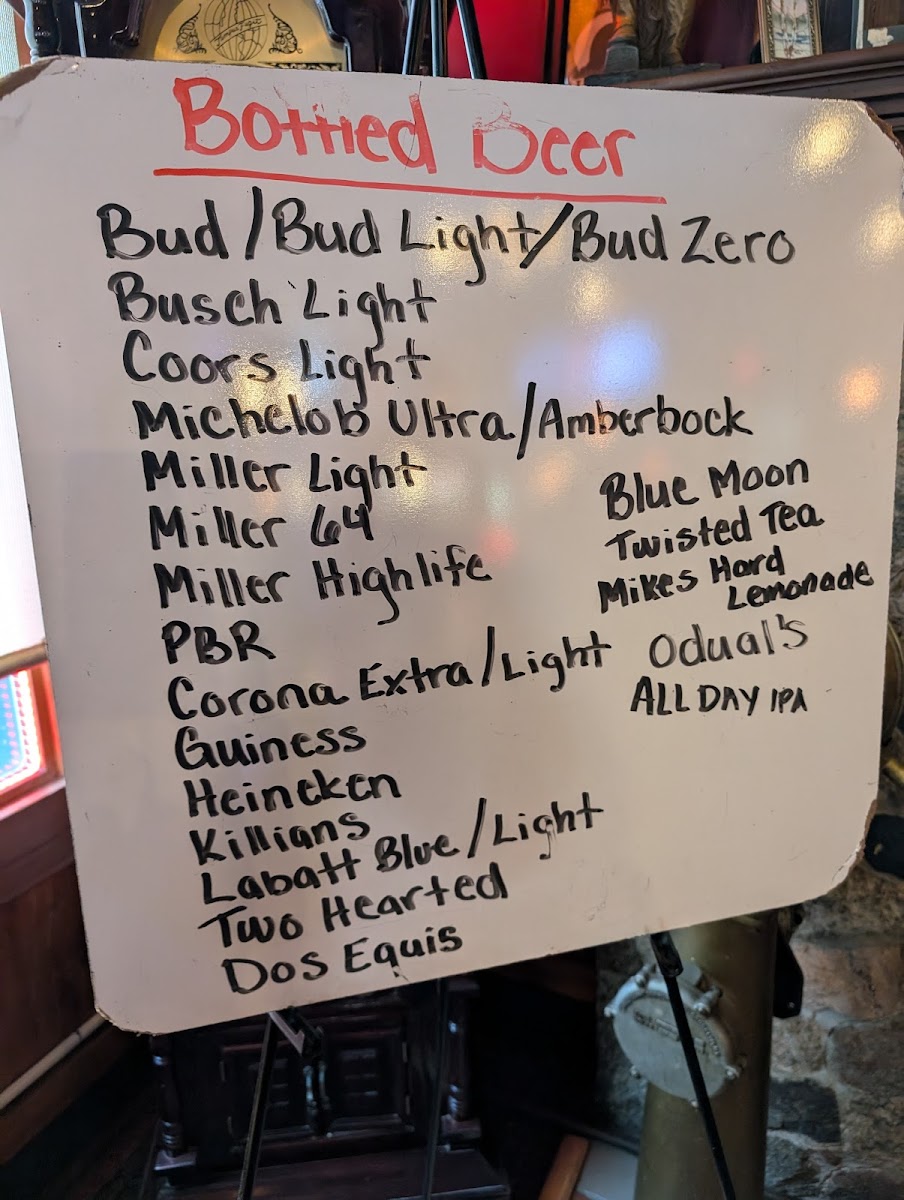 Bottled Beer
Bud/Bud Light/Bud Zero
Busch Light
Coors Light
Michelob Ultra/Amberbock
Miller Light
Miller 64
Miller Highlife
PBR
Corona Extra/Light
Guiness
Heineken
Killians
Labatt Blue/Light
Two Hearted
Dos Equis
Blue Moon
Twisted Tea
Mikes Hard
Lemonade
Odual's
ALL DAY IPA